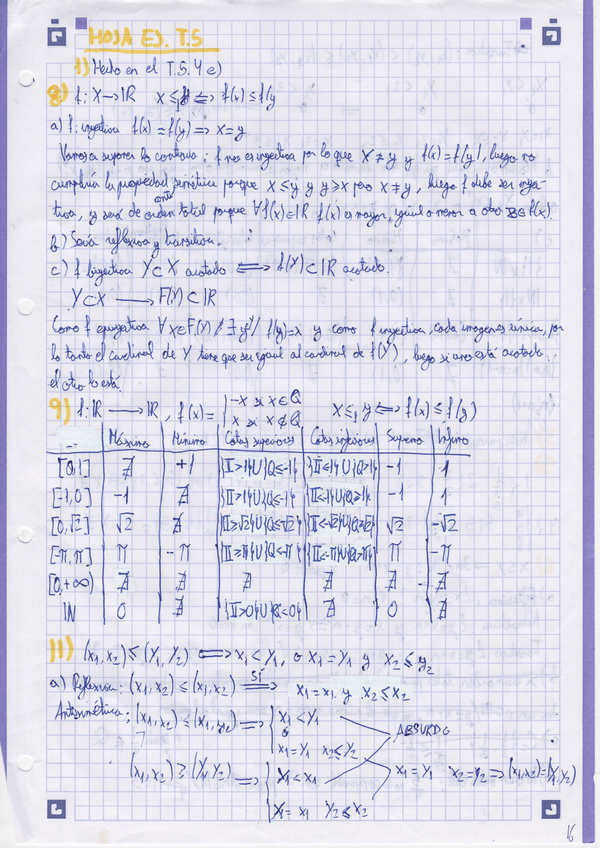 HOJA EJ. T.5
1) Hecho en el T.5. 4 e)
8) f: X → IR x ≤₁ y ⟺ f(x) ≤ f(y
a) f: inyectiva f(x) = f(y) ⟹ x = y
Vamos a suponer lo contrario: f no es inyectiva por lo que x ≠ y y f(x) = f(y), luego no
cumpliría la propiedad simétrica porque x ≤ y y y ≥ x pero x ≠ y, luego f debe ser inyec-
tiva, y será de orden total porque ∀ f(x) ∈ IR f(x) es mayor, igual o menor a otro ∈ f(x).
b) Será reflexiva y transitiva.
c) f biyectiva Y ⊂ X acotado ⟺ f(Y) ⊂ IR acotado.
Y ⊂ X → F(Y) ⊂ IR
Como f es ∀ x ∈ F(Y) / ∃ y / f(y) = x y como f inyectiva, cada imagen es única, por
lo tanto el cardinal de Y tiene que ser igual al cardinal de f(Y), luego si uno está acotado
el otro lo está.
9) f: IR → IR, f(x) = { -x si x ∈ Q x ≤₁ y ⟺ f(x) ≤ f(y)
x si x ∉ Q
Máximo Mínimo Cotas superiores Cotas inferiores Supremo Ínfimo
[0,1] ∄ +1 {II>1}U{Q≤-1} {II≤-1}U{Q>1} -1 1
[-1,0] -1 ∄ {II>1}U{Q≤-1} {II≤-1}U{Q≥1} -1 1
[0,√2] √2 ∄ {II≥√2}U{Q≤-√2} {II≤-√2}U{Q≥√2} √2 -√2
[-π,π] π -π {II≥π}U{Q≤-π} {II≤-π}U{Q≥π} π -π
[0,+∞) ∄ ∄ ∄ ∄ ∄ ∄
IN 0 ∄ {II>0}U{Q<0} ∄ 0 ∄
11) (x₁,x₂) ≤ (y₁,y₂) ⟺ x₁ < y₁, o x₁ = y₁ y x₂ ≤ y₂
a) Reflexiva: (x₁,x₂) ≤ (x₁,x₂) SÍ ⟹ x₁ = x₁ y x₂ ≤ x₂
Antisimétrica: (x₁,x₂) ≤ (y₁,y₂) ⟹ { x₁ < y₁
ó
x₁ = y₁ x₂ ≤ y₂
ABSURDO
(x₁,x₂) ≥ (y₁,y₂) ⟹ { y₁ < x₁
x₁ = y₁ x₂ = y₂ ⟹ (x₁,x₂) = (y₁,y₂)
y₁ = x₁ y₂ ≤ x₂
16